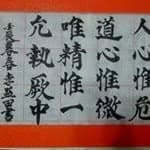 人心惟危
道心惟微
唯精惟一
允執厥中